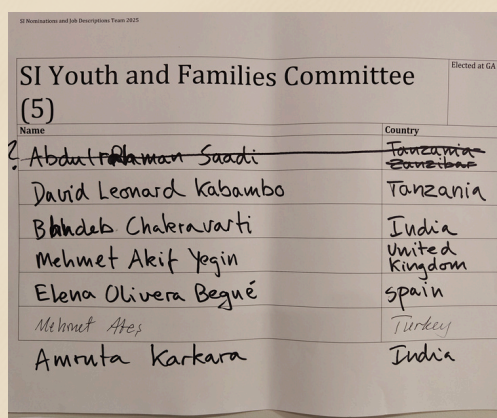 SI Nominations and Job Descriptions Team 2025
SI Youth and Families Committee
Elected at GA
(5)
Name Country
? Abdulrahman Saadi Tanzania-
Zanzibar
David Leonard Kabambo Tanzania
Chakravarti India
Mehmet Akif Yegin United
Kingdom
Elena Olivera Begué spain
Mehmet Ateş Turkey
Amruta Karkara India